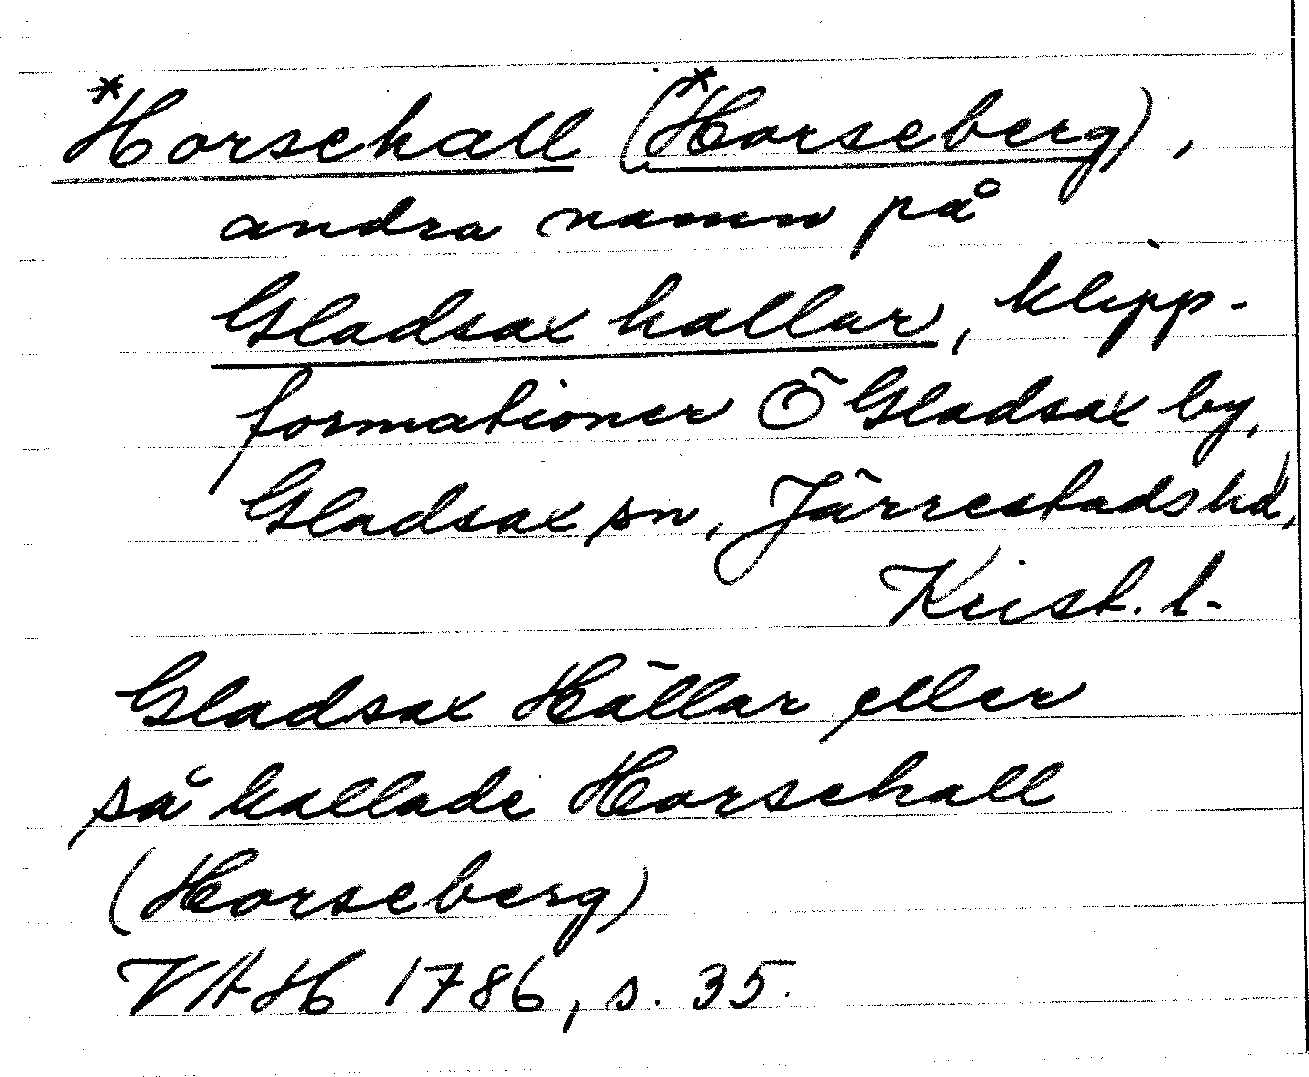 *Horsehall (*Horseberg),
andra namn på
Gladsax hallar, klipp-
formationer Ö Gladsax by,
Gladsax sn, Järrestads hd,
Krist. l.
Gladsax Hällar eller
så kallade Horsehall
(Horseberg)
VAH 1786, s. 35.